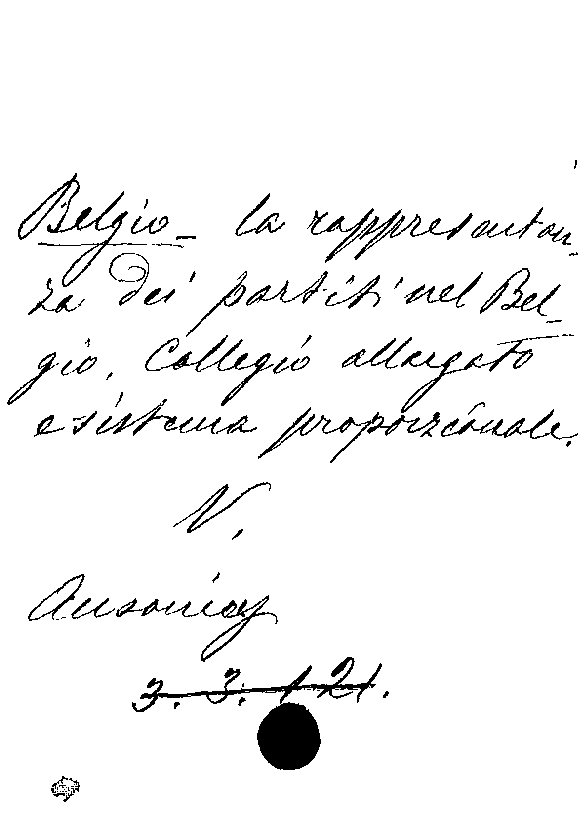 Belgio - la rappresentan-
za dei partiti nel Bel-
gio, Collegio allargato
e sistema proporzionale.
V.
Ausonio
3. 3. 121.